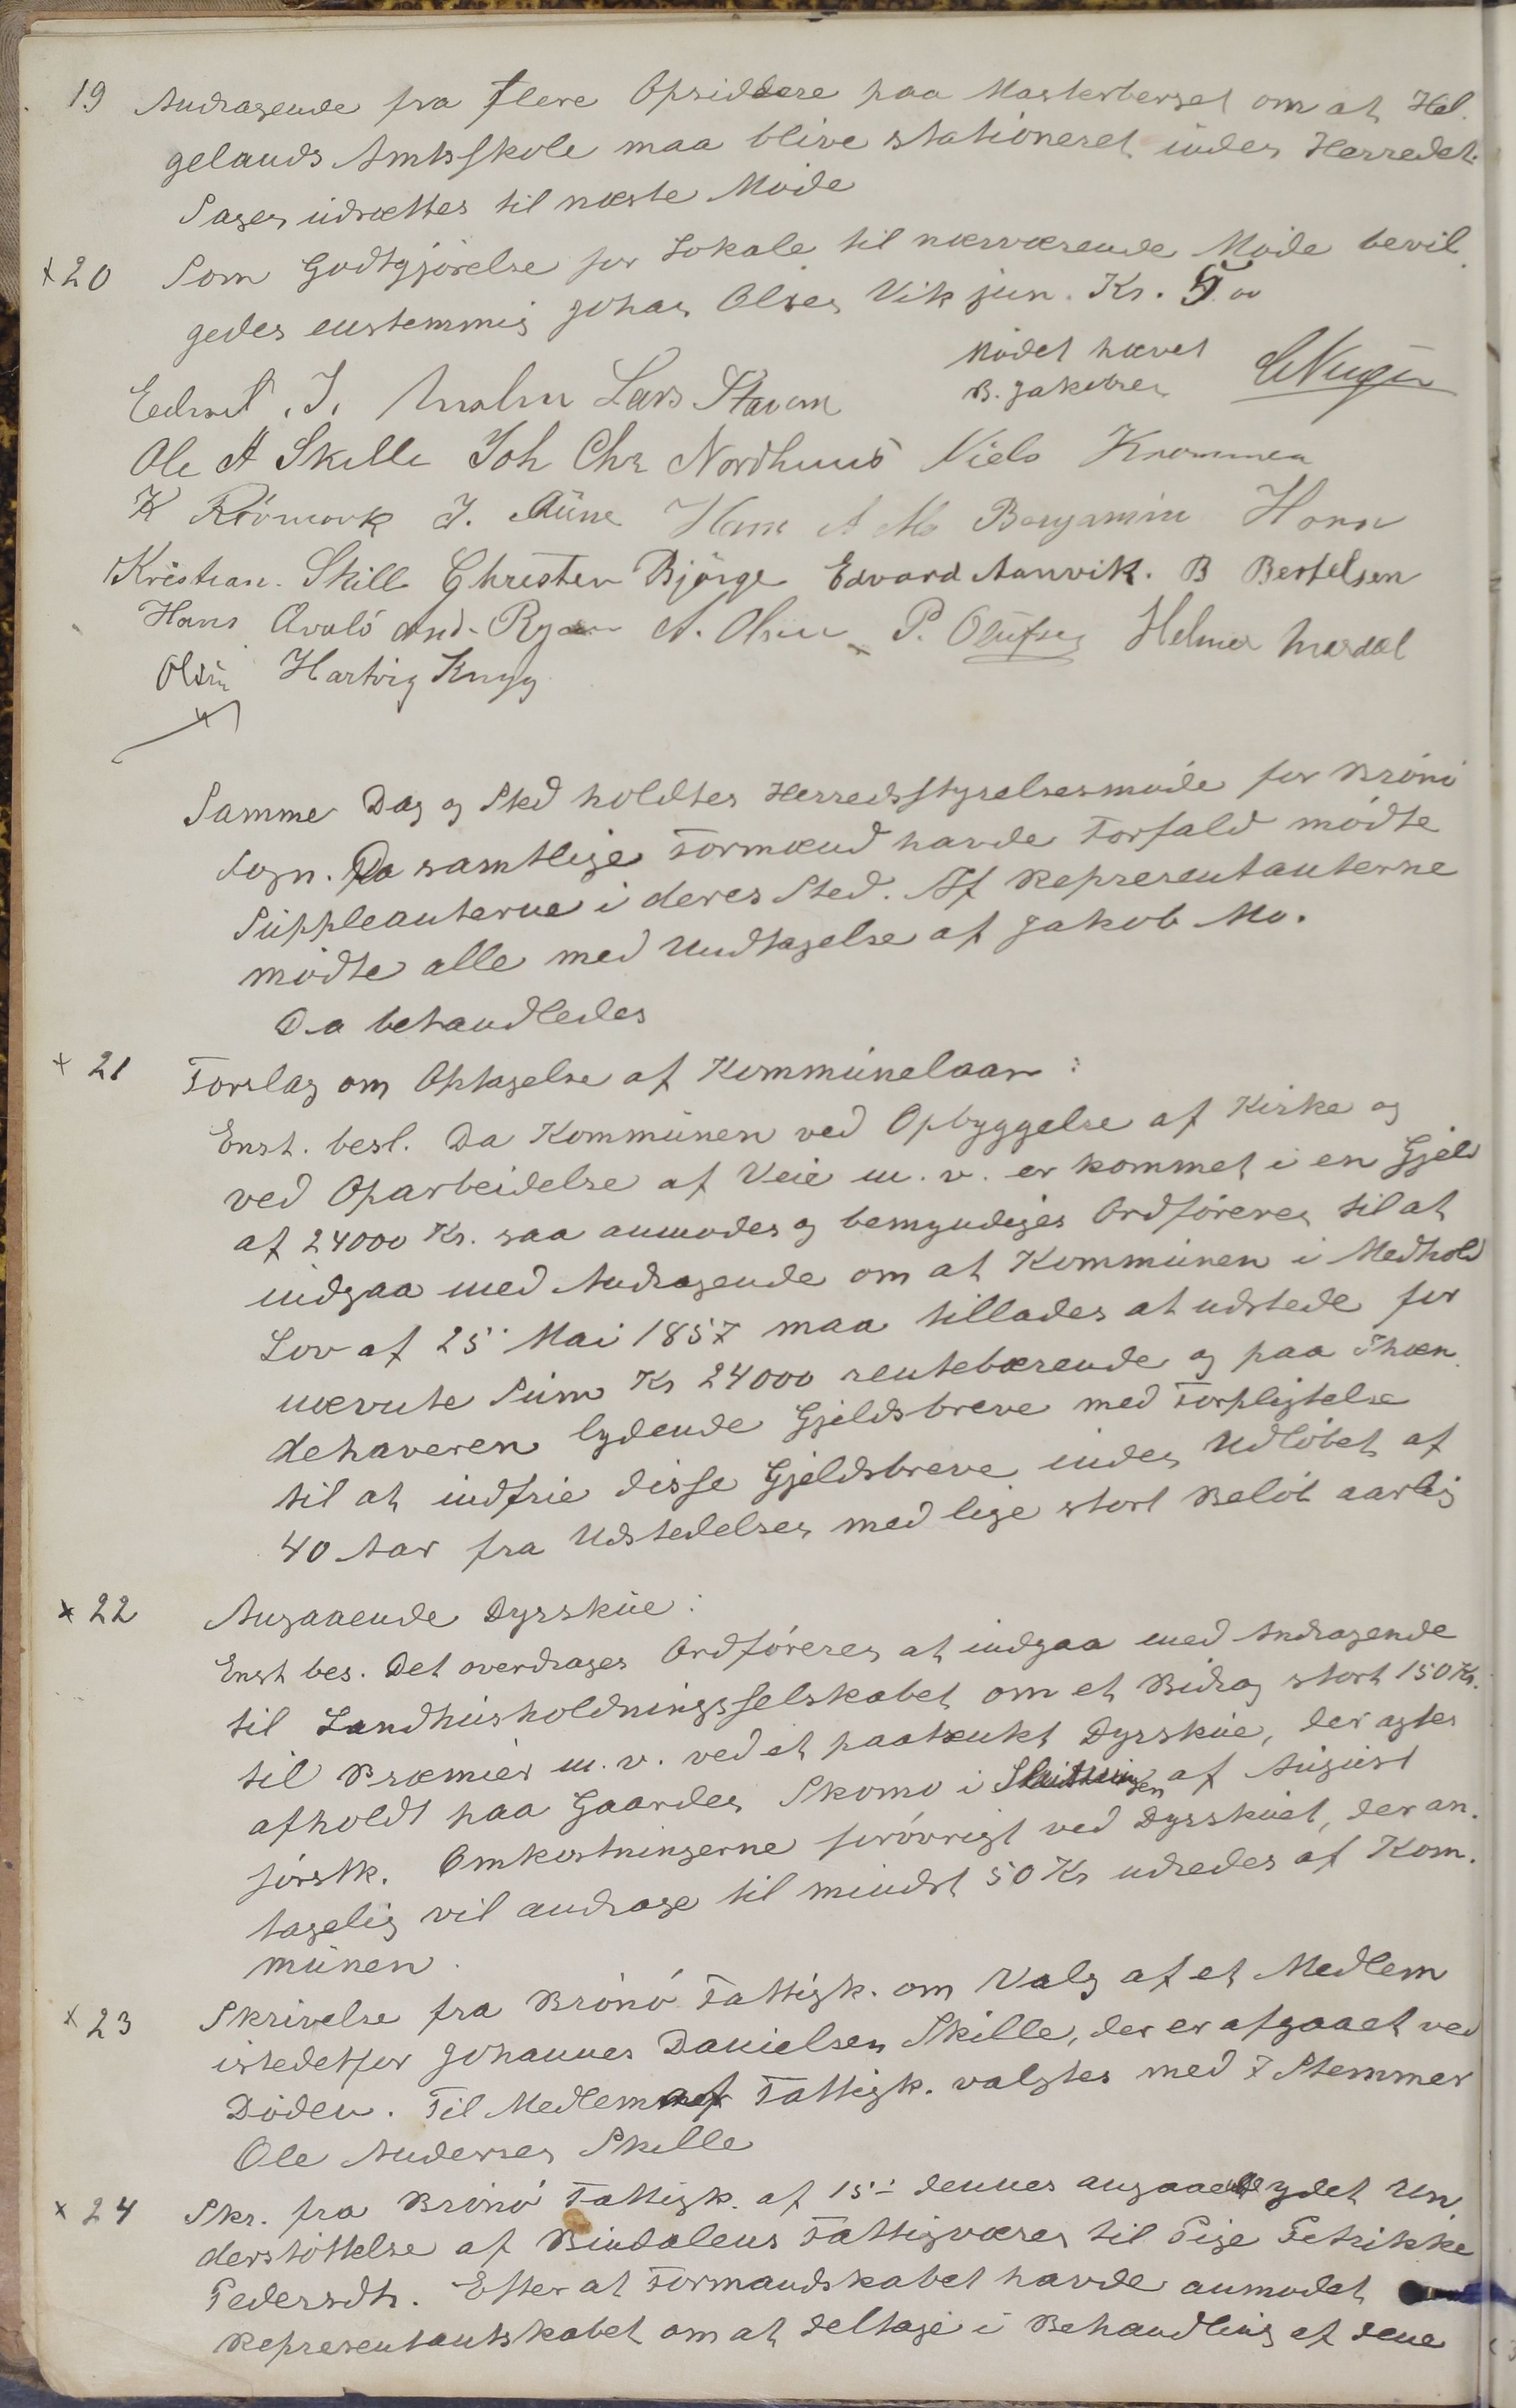 19 Andragende fra flere Opsiddere paa Masterberget om at Hel-
gelands Amtsskole maa blive stationeret inden Herredet.
Sagen udsættes til næste Møde
x 20 Som Godtgjørelse for Lokale til nærværende Møde bevil-
gedes enstemmig Johan Olsen Vik jun. Kr. 5.00
Mødet hævet
B. Jakobsen
Lars
Ole A Skille Joh Chr Nordhuus Niels Krommen
K J. Aune Hans A Mo Benjamin Horn
Kristian Skille Christen Bjørge Edvard Aanvik. B Bertelsen
Hans And. A. Olsen P. Olufsen Helmer
Olsen Hartvig
Samme Dag og Sted holdtes Herredsstyrelsesmøde for Brønø
Sogn. Da samtlige Formænd havde Forfald mødte
Suppleanterne i deres Sted. Af Representanterne
mødte alle med Undtagelse af Jakob Mo.
Da behandledes
x 21 Forslag om Optagelse af Kommunelaan:
Enst. besl. Da Kommunen ved Opbyggelse af Kirke og
ved Oparbeidelse af Veie m. v. er kommet i en Gjeld
af 24000 Kr. saa anmodes og bemyndiges Ordføreren til at
indgaa med Andragende om at Kommunen i Medhold
Lov af 25 Mai 1857 maa tillades at udstede for
nævnte Sum Kr 24000 rentebærende og paa Ihæn-
dehaveren lydende Gjeldsbreve med Forpligtelse
til at indfrie disse Gjeldsbreve inden Udløbet af
40 Aar fra Udstedelsen med lige stort Beløb aarlig
x 22 Angaaende Dyrskue:
Enst bes. Det overdrages Ordføreren at indgaa med Andragende
til Landhusholdningsselskabet om et Bidrag stort 150 Kr.
til Præmier m. v. ved et paatænkt Dyrskue, der agtes
afholdt paa Gaarden Skomo i Slutningen af August
førstk. Omkostningerne forøvrigt ved Dyrskuet, der an-
tagelig vil andrage til mindst 50 Kr udredes af Kom-
munen.
x 23 Skrivelse fra Brønø Fattigk. om Valg af et Medlem
istedetfor Johannes Danielsen Skille, der er afgaaet ved
Døden. Til Medlem af Fattigk. valgtes med 7 Stemmer
Ole Andersen Skille
x 24 Skr. fra Brønø Fattigk. af 15de dennes angaaende ydet Un-
derstøttelse af Bindalens Fattigvæsen til Pige Petrikke
Pedersdtr. Efter at Formandskabet havde anmodet
Representantskabet om at deltage i Behandling af dene